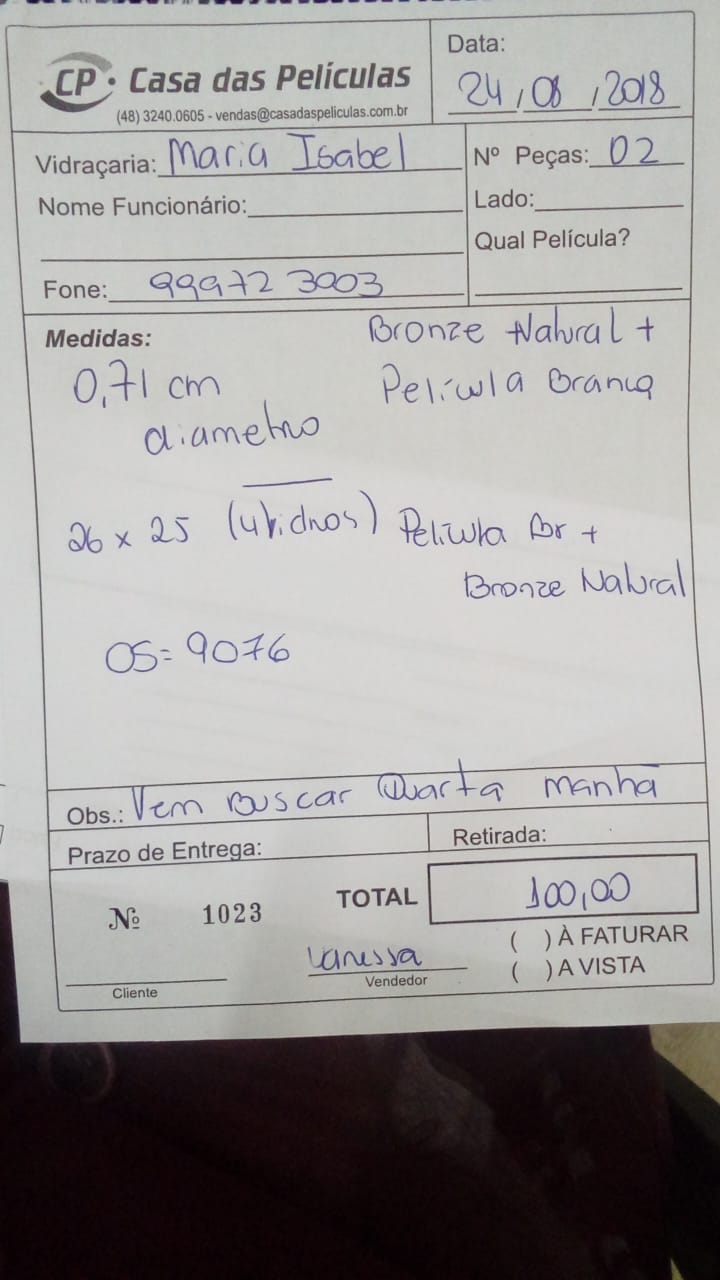 CP · Casa das Películas
(48) 3240.0605 - vendas@casadaspeliculas.com.br
Data:
24/08/2018
Vidraçaria: Maria Isabel
Nº Peças: 02
Nome Funcionário:
Lado:
Qual Película?
Fone: 999723003
Medidas:
Bronze Natural +
0,71 cm
Película Branca
diametro
26 x 25 (4 vidros) Película Br +
Bronze Natural
OS= 9076
Obs.: Vem Buscar Quarta manhã
Prazo de Entrega:
Retirada:
Nº 1023
TOTAL 100,00
( ) À FATURAR
Vanessa
( ) A VISTA
Cliente
Vendedor